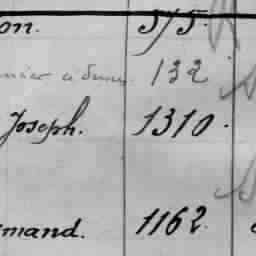 on. 575.
132
Joseph. 1310.
mand. 1162.